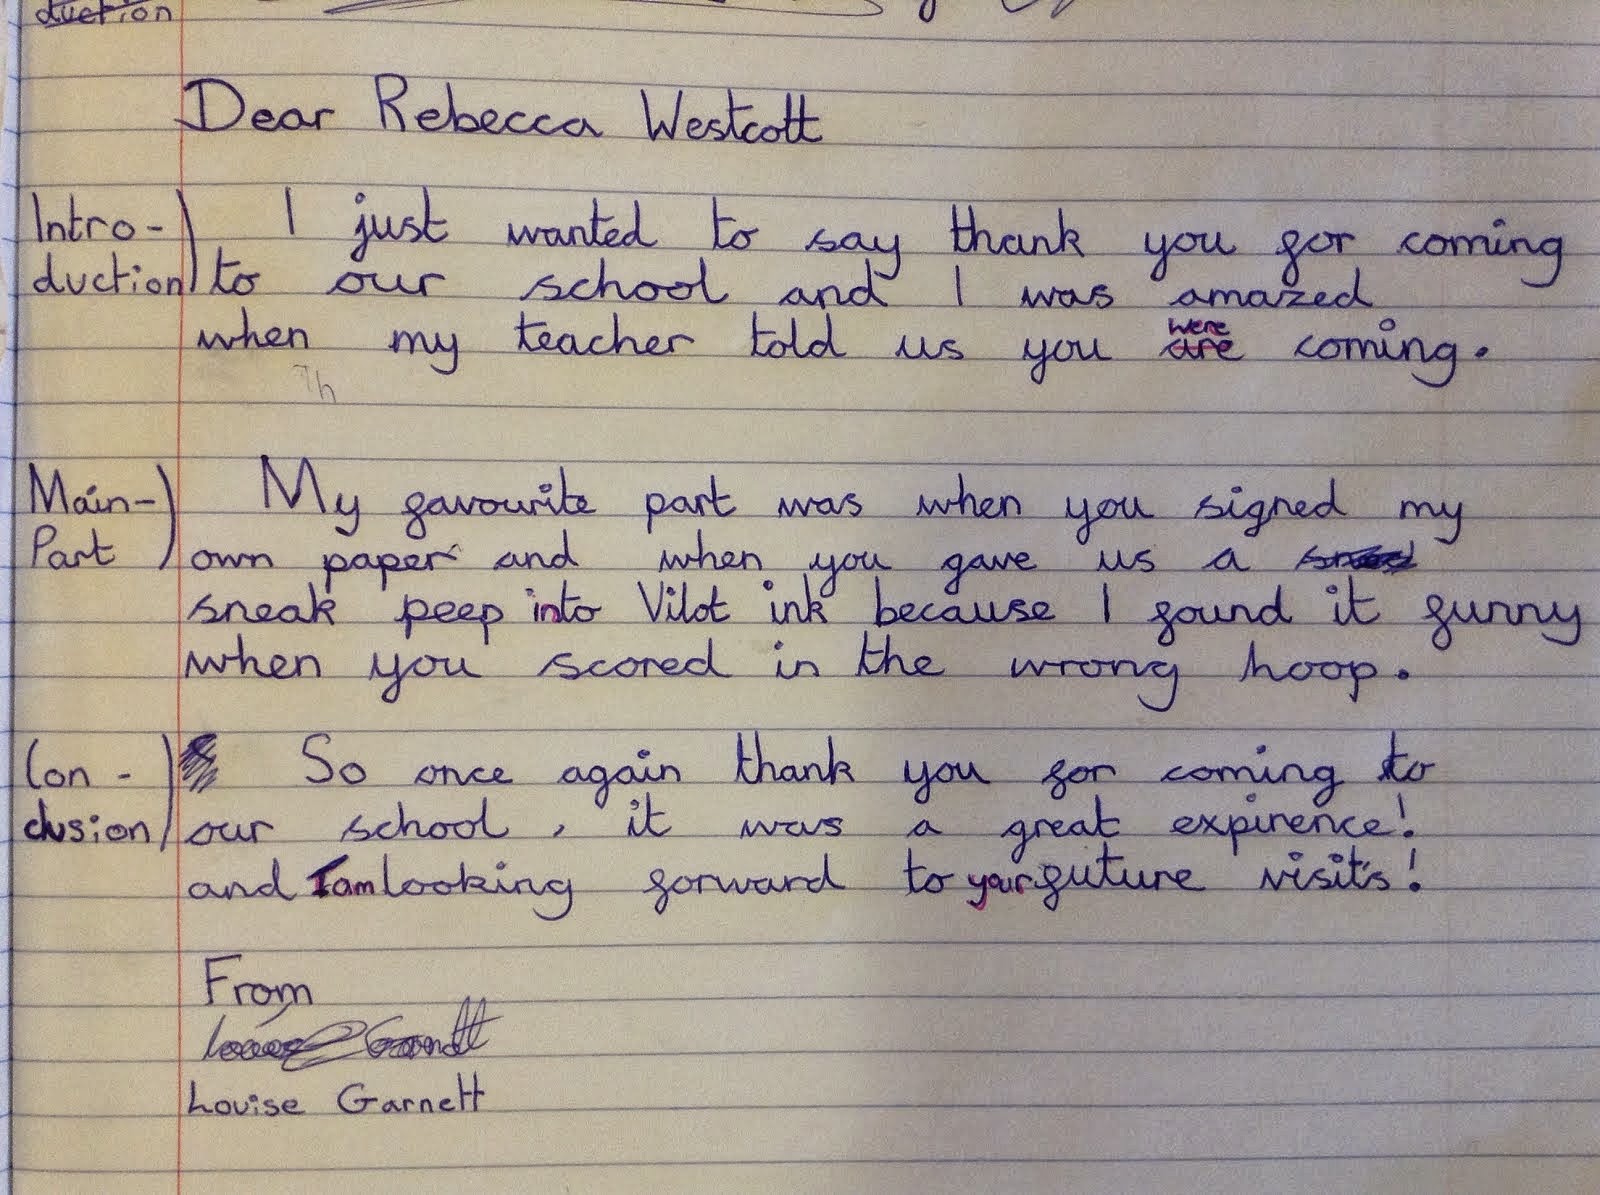 duction
Dear Rebecca Westcott
Intro-) I just wanted to say thank you for coming
duction) to our school and I was amazed
when my teacher told us you were are coming.
Th
Main-) My favourite part was when you signed my
Part) own paper and when you gave us a
sneak peep into Vilot ink because I found it funny
when you scored in the wrong hoop.
Con-) So once again thank you for coming to
clusion) our school, it was a great expirence!
and I am looking forward to your future visits!
From
Louise Garnett
Louise Garnett